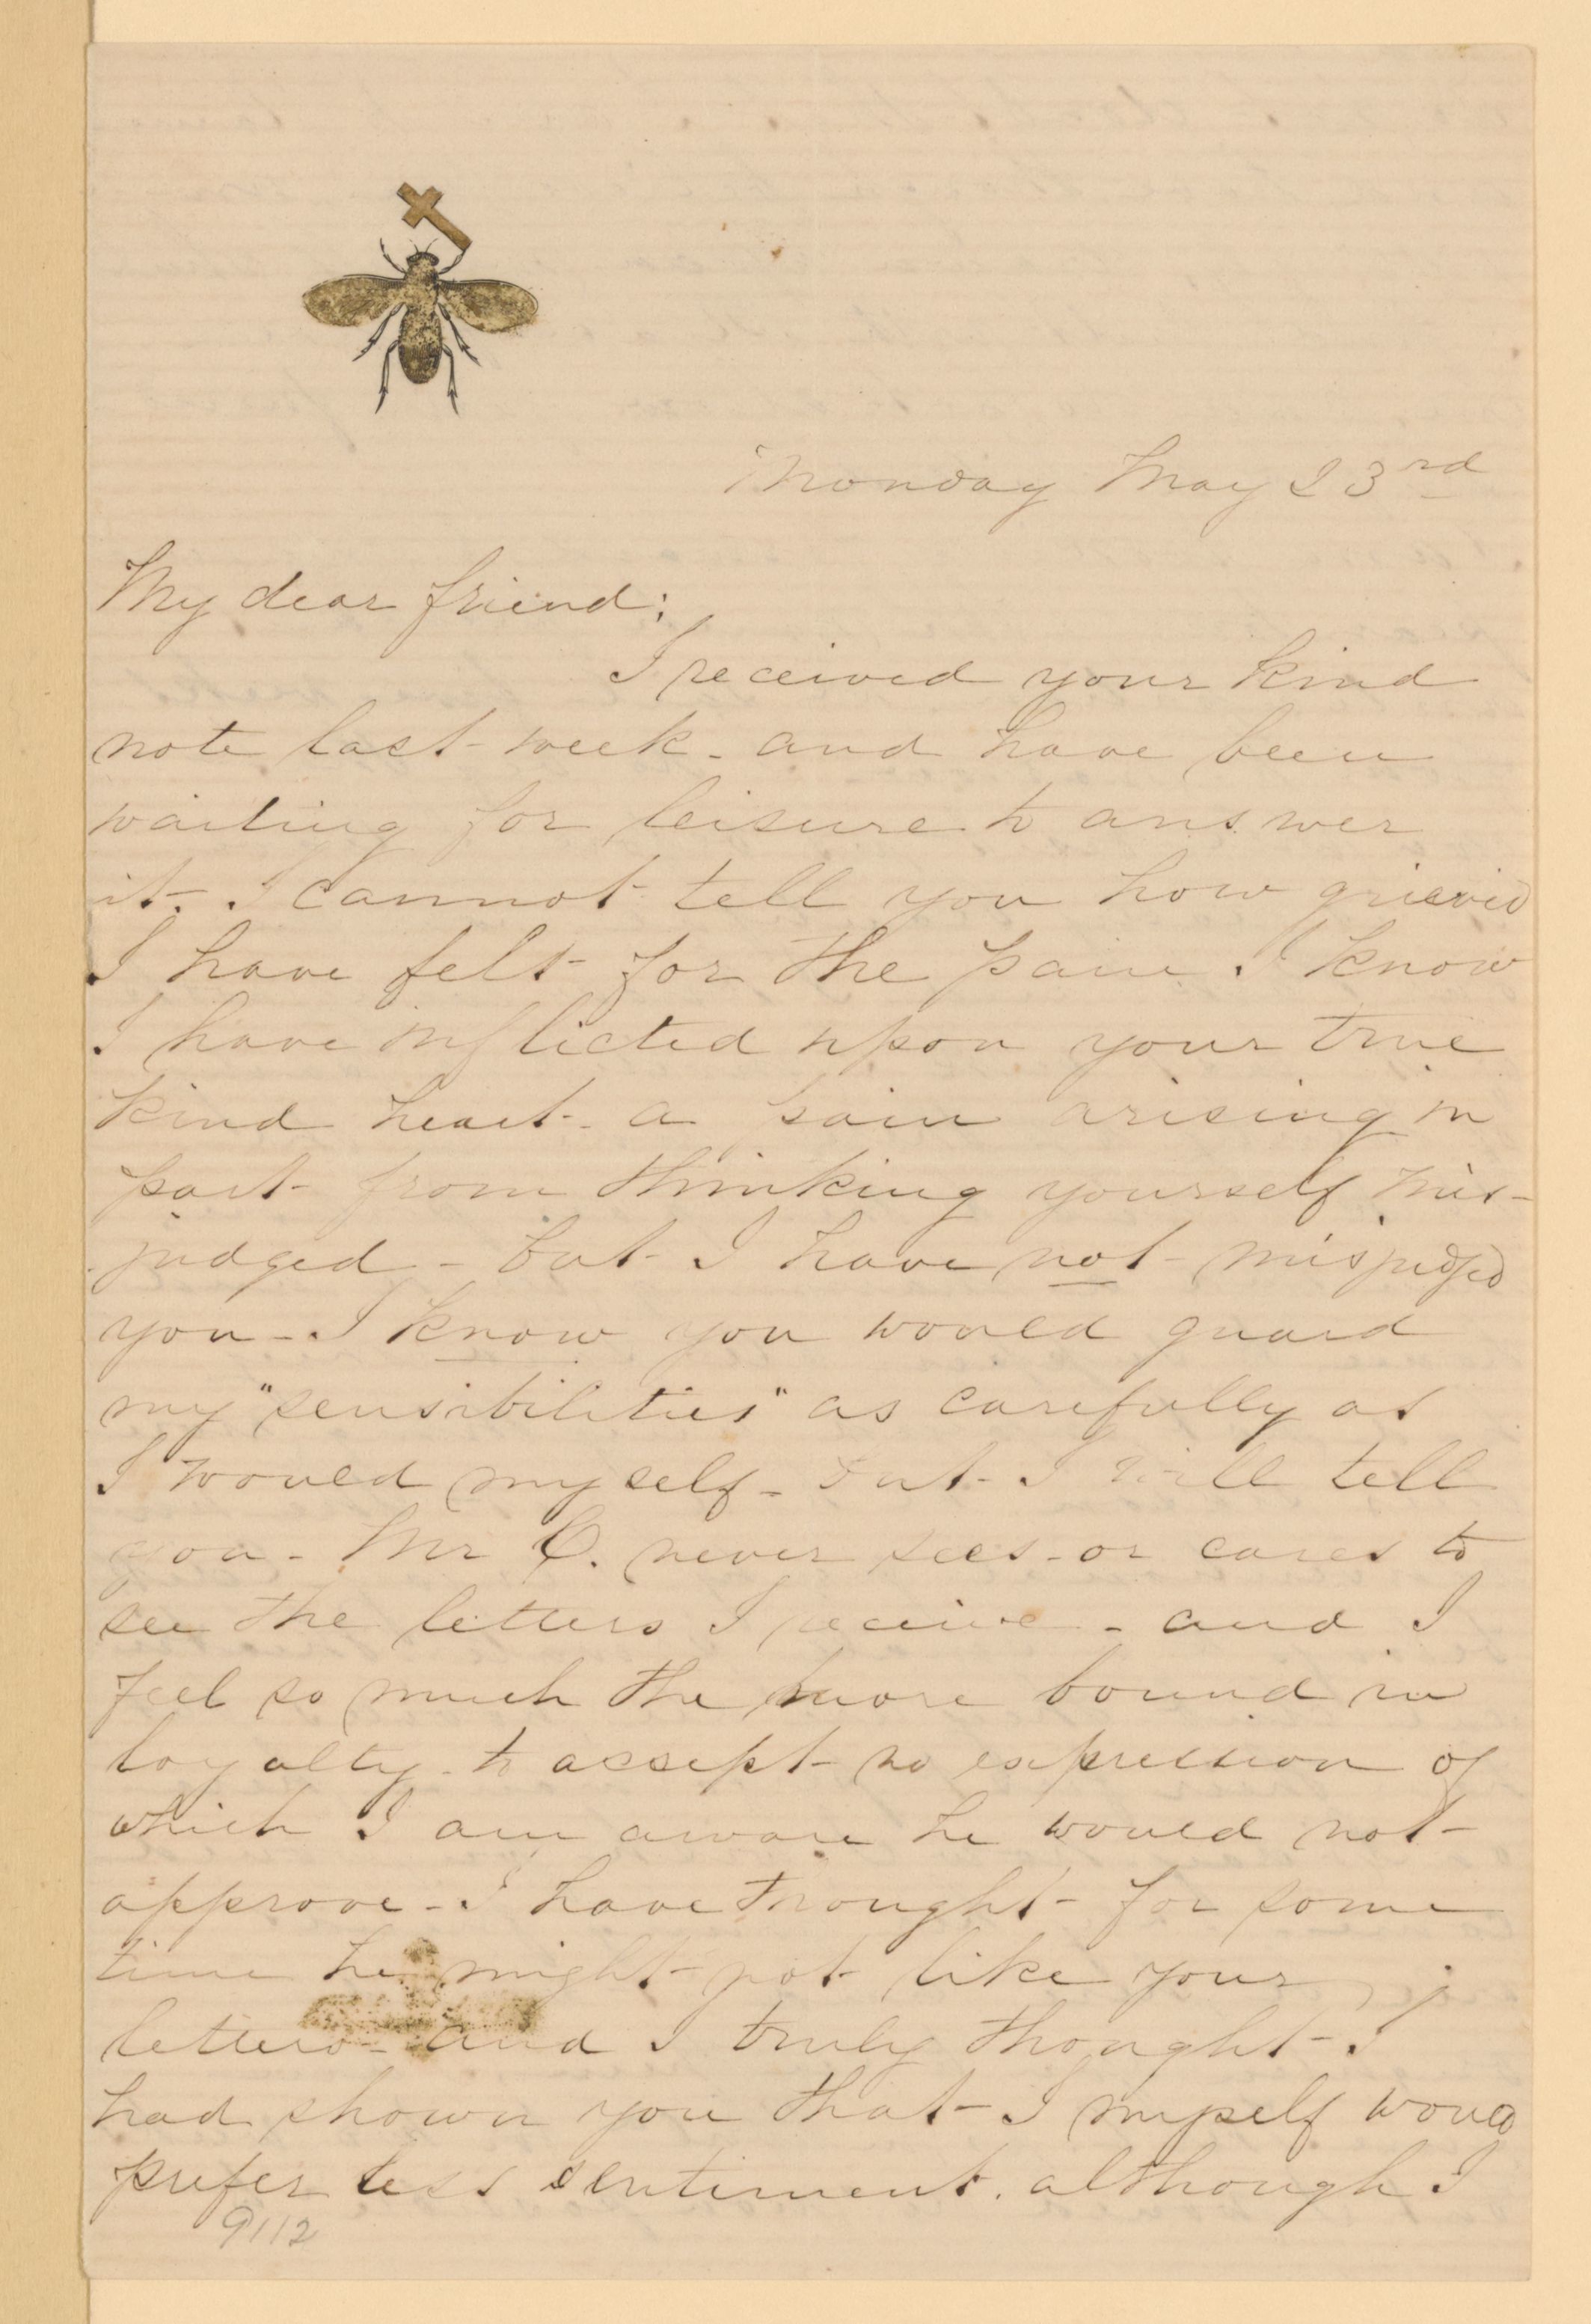 Monday May 23rd
My dear friend;
I received your kind
note last week - and have been
waiting for leisure to answer
it. I cannot tell you how grieved
I have felt for the pain I know
I have inflicted upon your true
kind heart - a pain arising in
part from thinking yourself mis-
judged - but I have not misjudged
you - I know you would guard
my "sensibilities" as carefully as
I would myself - but I will tell
you - Mr C. never sees - or cares to
see the letters I receive - and I
feel so much the more bound in
loyalty to accept no expression of
which I am aware he would not
approve - I have thought for some
time he might not like your
letters - and I truly thought I
had shown you that I myself would
prefer less sentiment. although I
9112